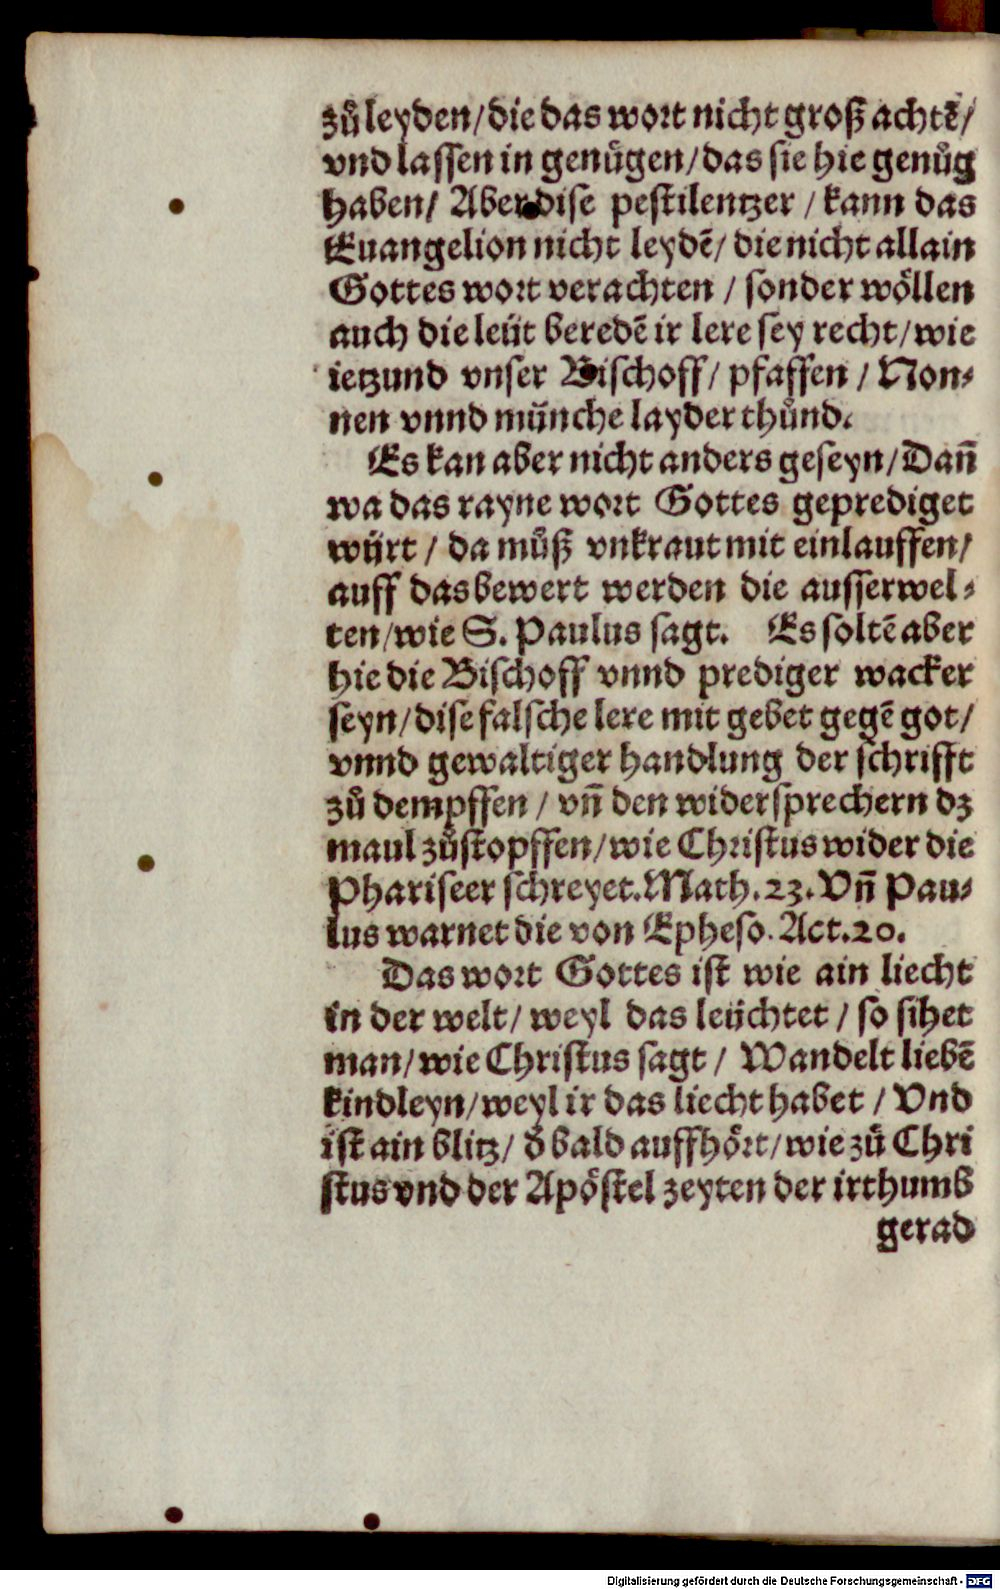 zůleyden/die das wort nicht groß achtẽ/
vnd lassen in genůgen/das sie hie genůg
haben/ Aber dise pestilentzer / kann das
Euangelion nicht leydẽ/ die nicht allain
Gottes wort verachten / sonder wöllen
auch die leüt beredẽ ir lere sey recht/wie
ietzund vnser Bischoff/ pfaffen / Non⸗
nen vnnd münche layder thůnd.
Es kan aber nicht anders geseyn/Dañ
wa das rayne wort Gottes geprediget
würt / da můß vnkraut mit einlauffen/
auff das bewert werden die ausserwel⸗
ten/wie S. Paulus sagt. Es soltẽ aber
hie die Bischoff vnnd prediger wacker
seyn/dise falsche lere mit gebet gegẽ got/
vnnd gewaltiger handlung der schrifft
zů dempffen / vñ den widersprechern dz
maul zůstopffen/wie Christus wider die
Phariseer schreyet.Math.23.Vñ Pau⸗
lus warnet die von Epheso. Act.20.
Das wort Gottes ist wie ain liecht
in der welt/ weyl das leüchtet / so sihet
man/wie Christus sagt / Wandelt liebẽ
kindleyn/weyl ir das liecht habet / Vnd
ist ain blitz/ d̕ bald auffhört/wie zů Chri
stus vnd der Apöstel zeyten der irthumb
gerad
Digitalisierung gefördert durch die Deutsche Forschungsgemeinschaft - DFG